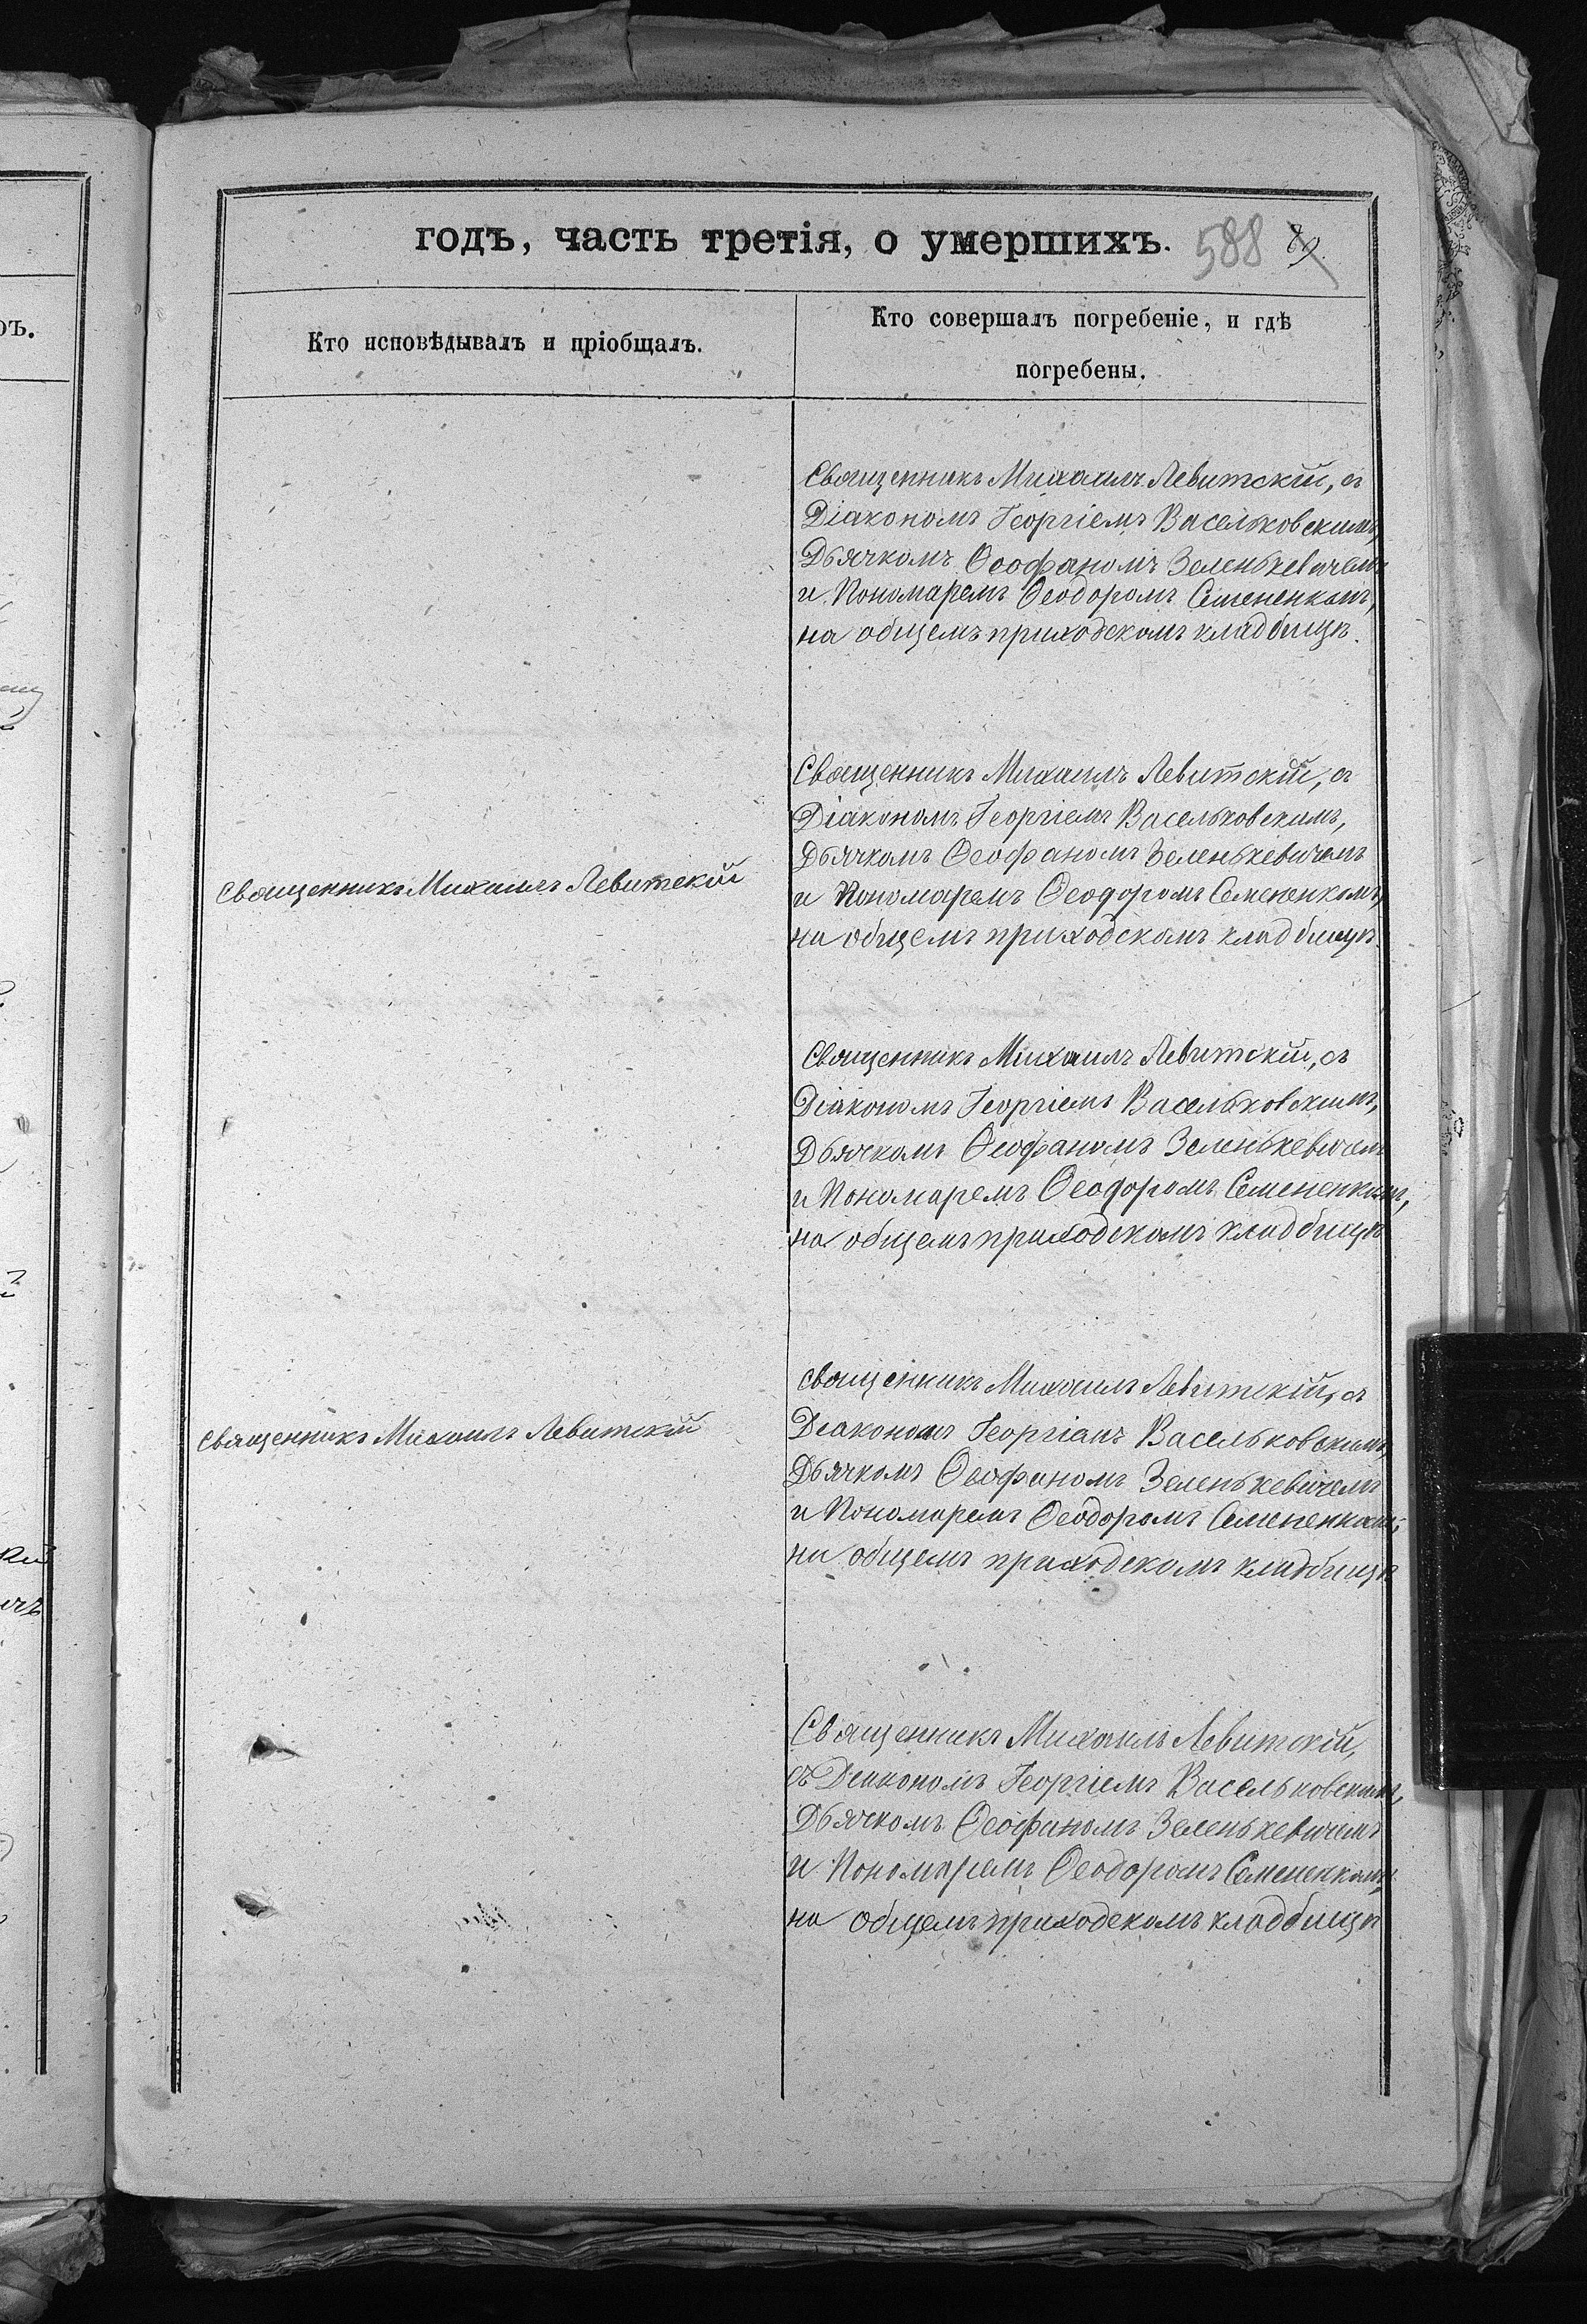 годъ, часть третія, о умершихъ. 588
Кто исповѣдывалъ и пріобщалъ.
Кто совершалъ погребеніе, и гдѣ
погребены.
Священникъ Михаилъ Левитскій, съ
Діакономъ Георгіемъ Васельковскимъ,
Дьячкомъ Ѳеофаномъ Зеленькевичемъ
и Пономаремъ Ѳеодоромъ Семененкомъ,
на общемъ приходскомъ кладбищѣ.
Священникъ Михаилъ Левитскій
Священникъ Михаилъ Левитскій, съ
Діакономъ Георгіемъ Васельковскимъ,
Дьячкомъ Ѳеофаномъ Зеленькевичемъ
и Пономаремъ Ѳеодоромъ Семененкомъ,
на общемъ приходскомъ кладбищѣ.
Священникъ Михаилъ Левитскій, съ
Діакономъ Георгіемъ Васельковскимъ,
Дьячкомъ Ѳеофаномъ Зеленькевичемъ
и Пономаремъ Ѳеодоромъ Семененкомъ,
на общемъ приходскомъ кладбищѣ
Священникъ Михаилъ Левитскій
Священникъ Михаилъ Левитскій, съ
Діакономъ Георгіемъ Васельковскимъ,
Дьячкомъ Ѳеофаномъ Зеленькевичемъ
и Пономаремъ Ѳеодоромъ Семененкомъ,
на общемъ приходскомъ кладбищѣ
Священникъ Михаилъ Левитскій,
съ Діакономъ Георгіемъ Васельковскимъ,
Дьячкомъ Ѳеофаномъ Зеленькевичемъ
и Пономаремъ Ѳеодоромъ Семененкомъ,
на общемъ приходскомъ кладбищѣ